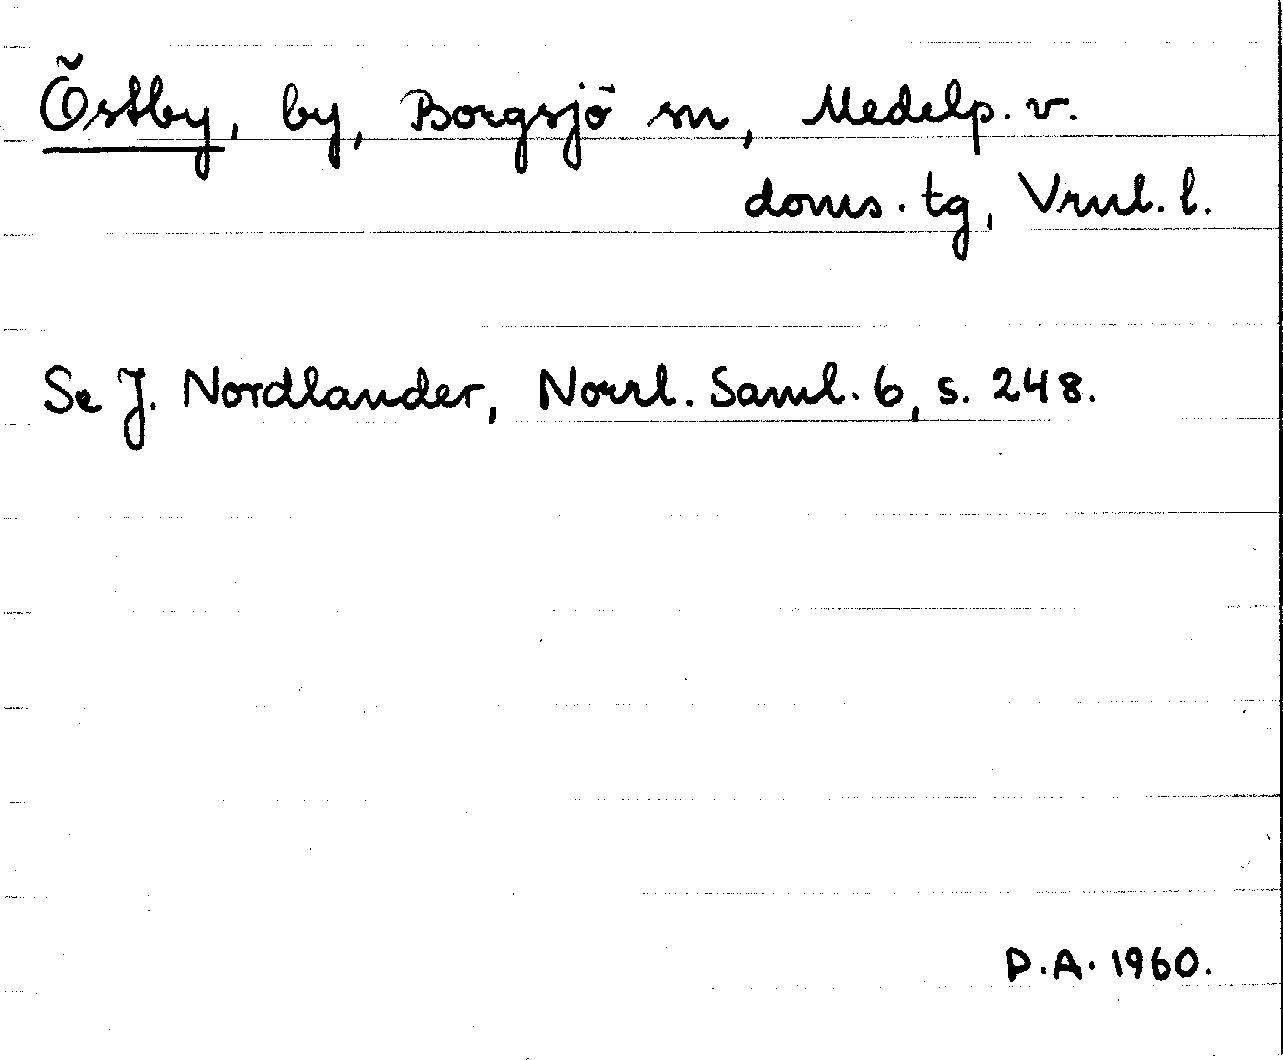 Östby, by, Borgsjö sn, Medelp. v.
doms. tg, Vrnl. l.
Se J. Nordlander, Norrl. Saml. 6, s. 248.
D.A. 1960.